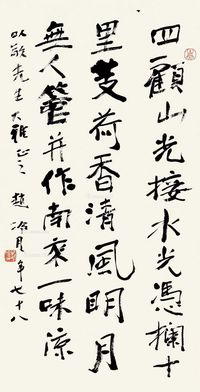 四顧山光接水光憑欄十
里芰荷香清風明月
無人管并作南來一味涼
先生大雅正之 趙冷月年七十八